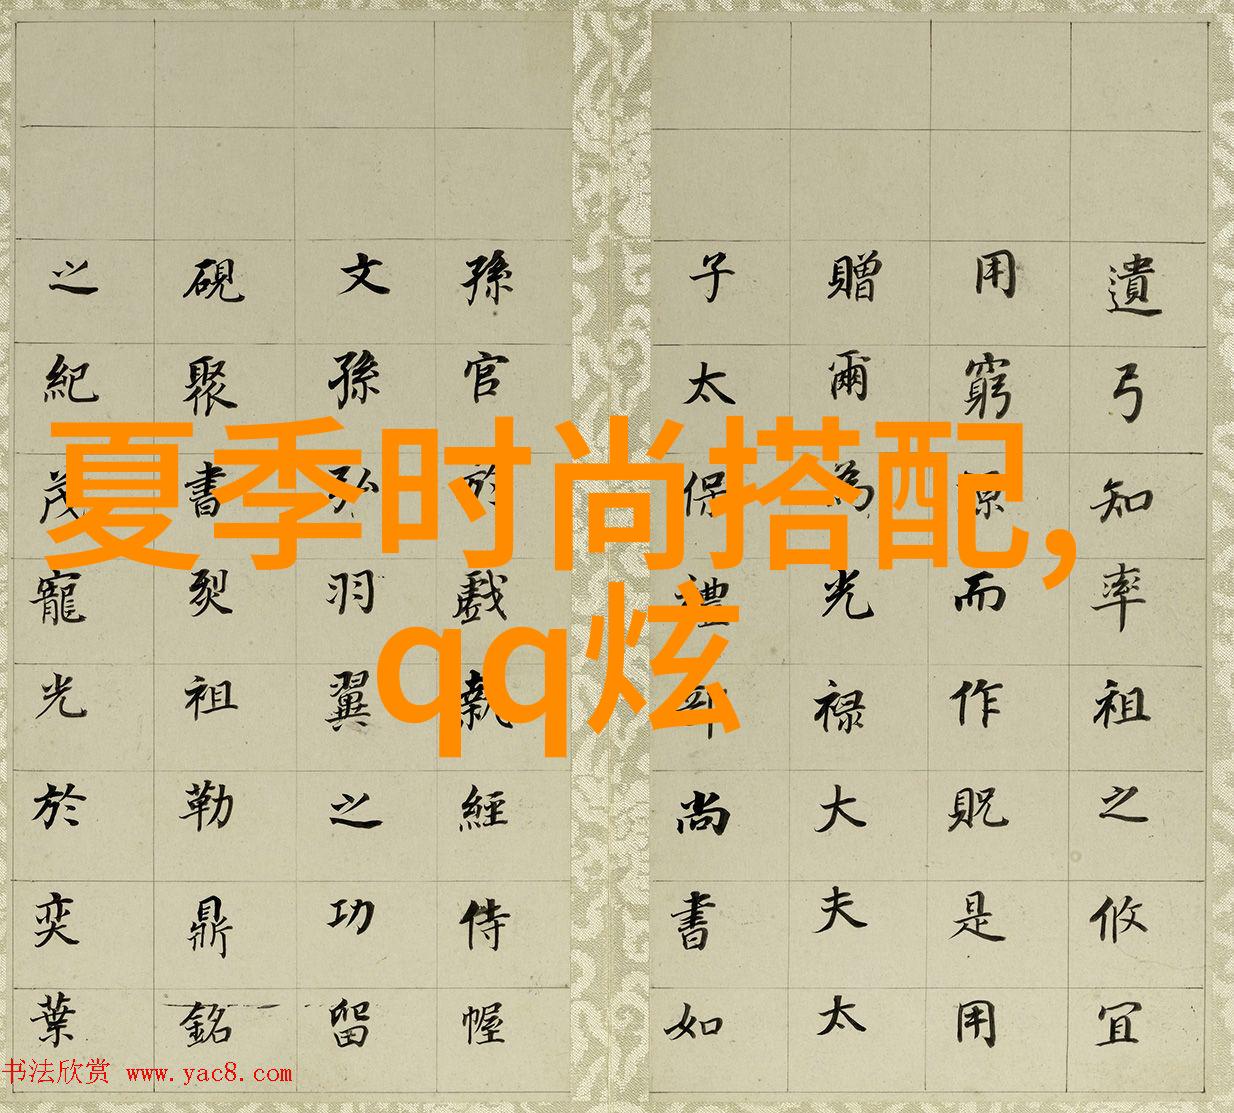 夏季时尚搭配,
qq炫
遺弓知率祖之攸宜
用窮而作貺是用
贈爾為光禄大夫太
子太保禮尚書如
孫官於戲執經侍幄
文孫弘羽翼之功留
硯聚書裂祖勒鼎銘
之紀茂寵光於奕葉
书法欣赏 www.yac8.com